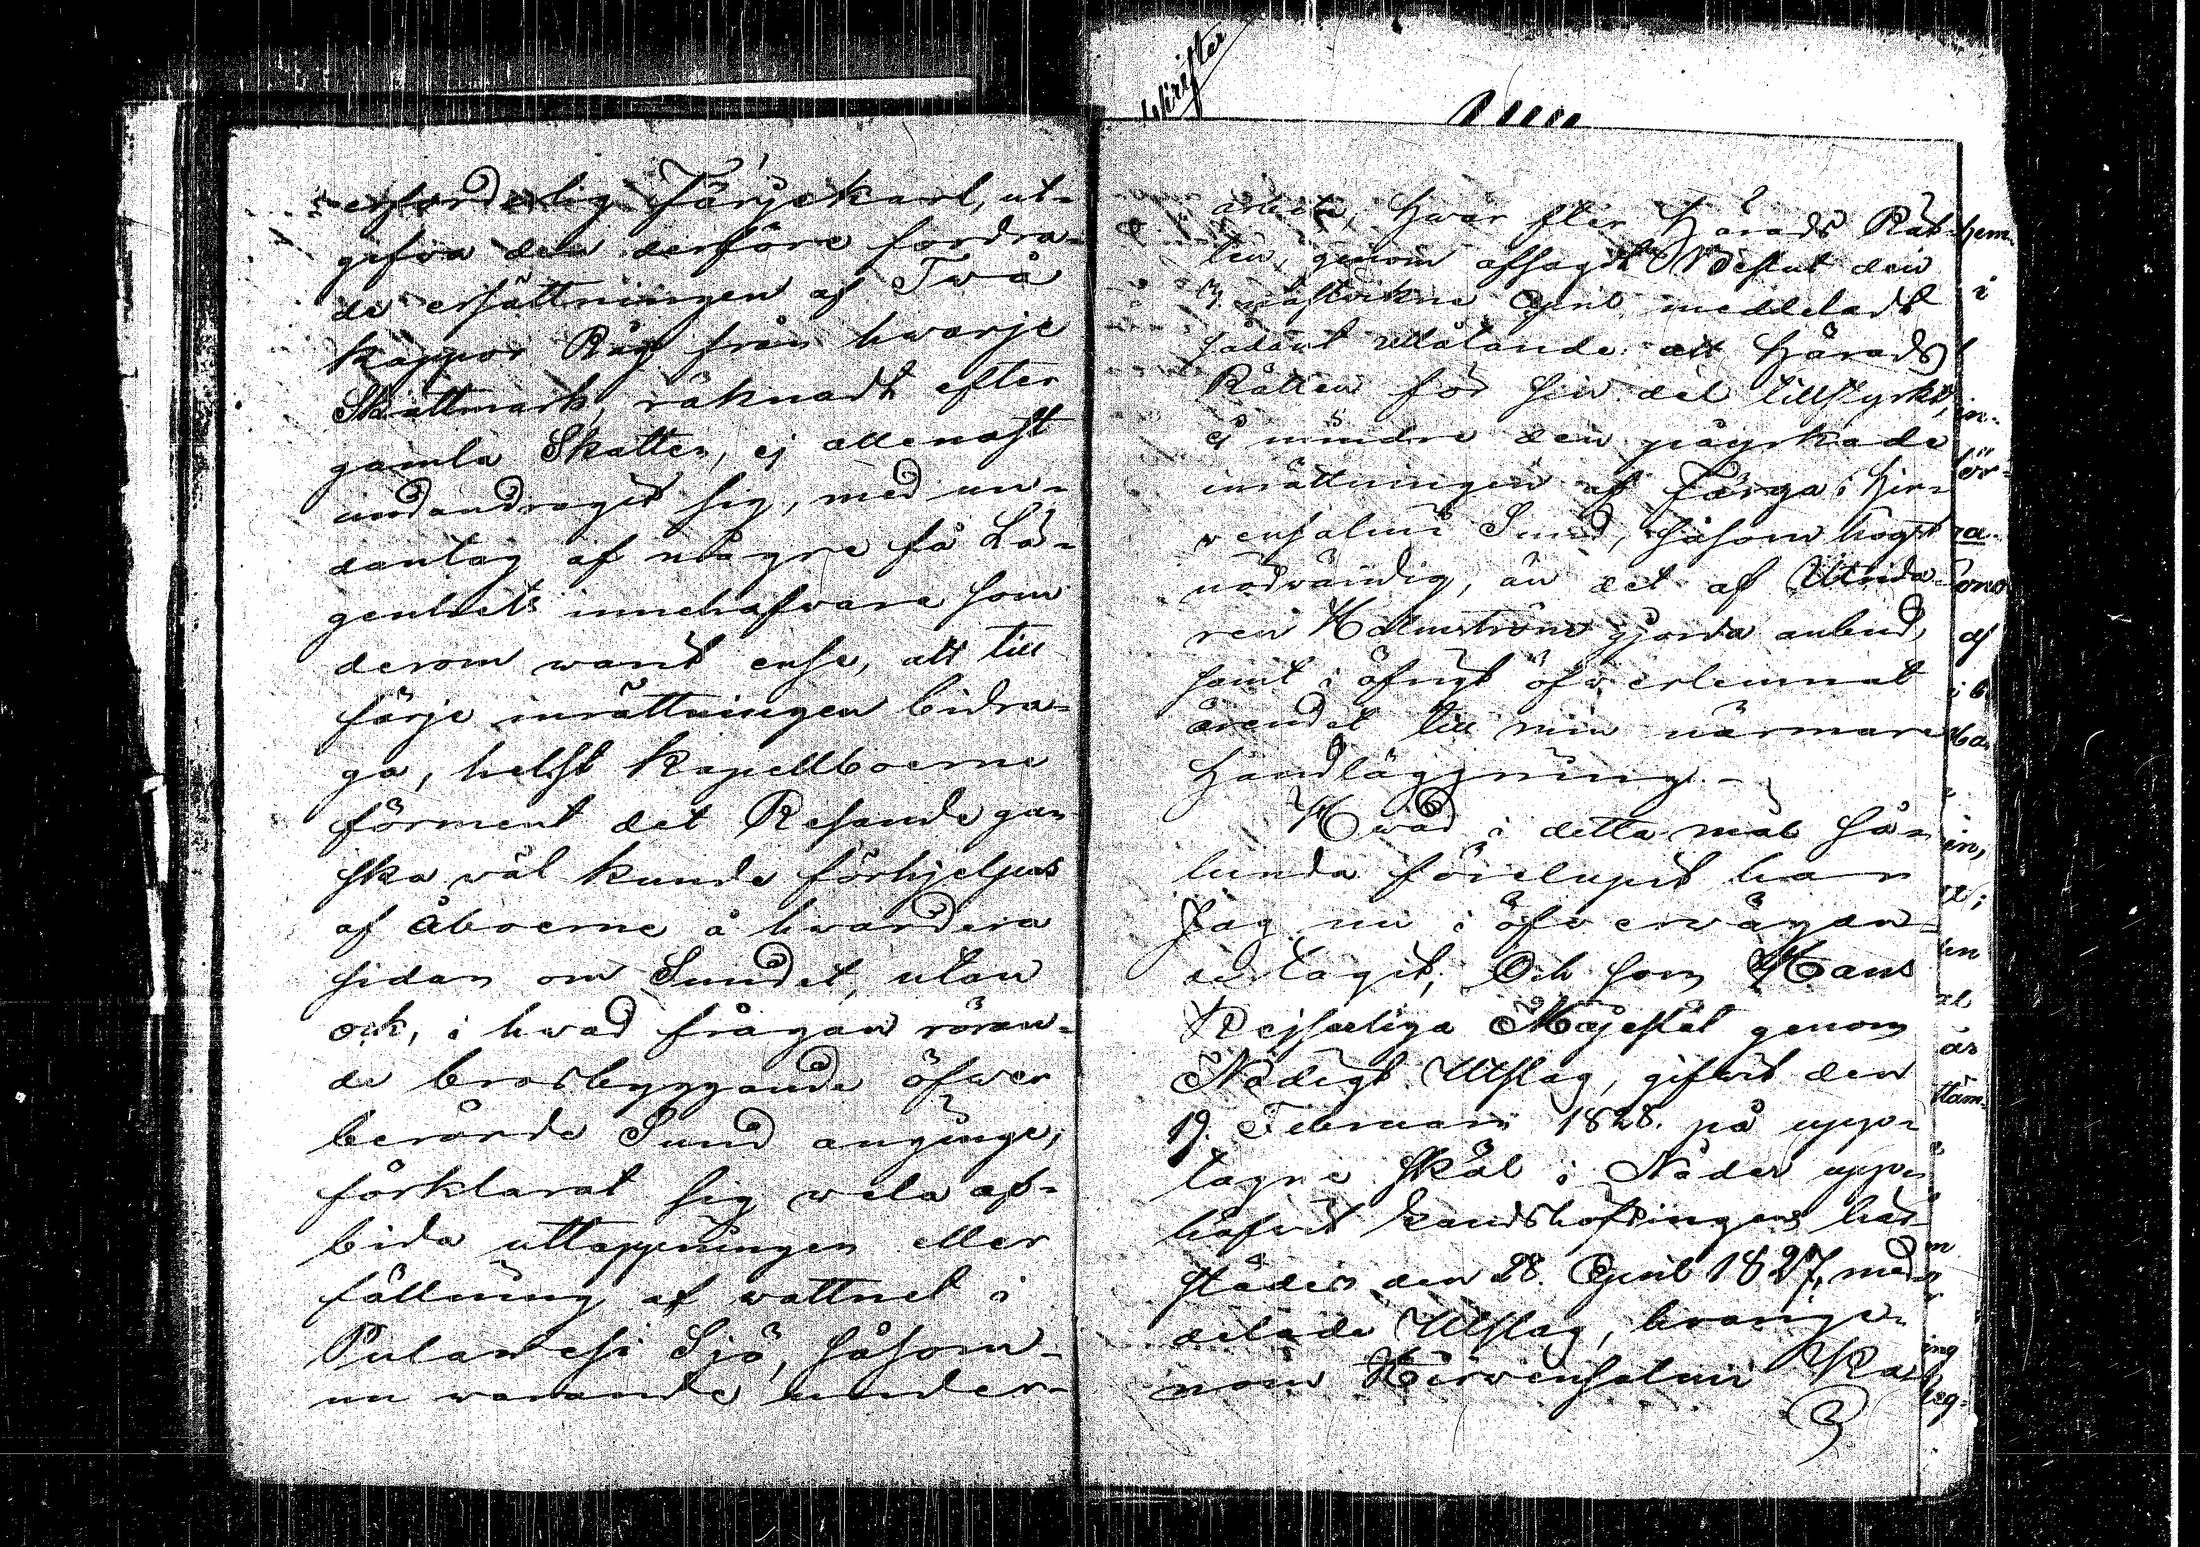 erforderlig Färjekarl, ut-
gifva den derföre fordra-
de ersättningen af Två
kappor Råg från hwarje
Skattmark, räknadt efter
gamla Skatten, ej allenast
undandragit sig, med un-
dantag af några få Lä-
genhets innehafvare som
derom warit ense, att till
färje inrättningen bidra-
ga, helst Kapellboerne
förment det Resande gan-
ska wäl kunde förhjelpas
af Åboerne å hwardera
sidan om Sundet, utan
ock, i hwad frågan röran-
de brobyggande öfwer
berörde Sund anginge,
förklarat sig wela af-
bida uttappningen eller
fällning af wattnet i
Pulawesi Sjö, såsom
nu warande under
arbete, Hwarefter Härads Rät-
ten, genom afsagdt Beslut den
sistwikne April meddeladt
sådant utlåtande: att Härads
Rätten för sin del tillstyrkt,
ej mindre den påyrkade
inrättningen af Färga i Hir-
vensalmi Sund, såsom högst
nödwändig, än det af
ren Holmström gjorda anbud,
samt i öfrigt öfwerlemnat
ärendet till min närmare
Handläggning.-
Hwad i detta mål så-
lunda förelupit har
Jag nu i öfwerwägan-
de tagit; Och som Hans
Kejserliga Majestät genom
Nådigt Utslag, gifwit den
19. Februari 1828. på upp-
tagne skäl i Nåder upp-
häfwit Landshöfdingens här-
städes den 28. April 1827, med-
delade Utslag, hwarige-
nom Hirvensalmi Ka-